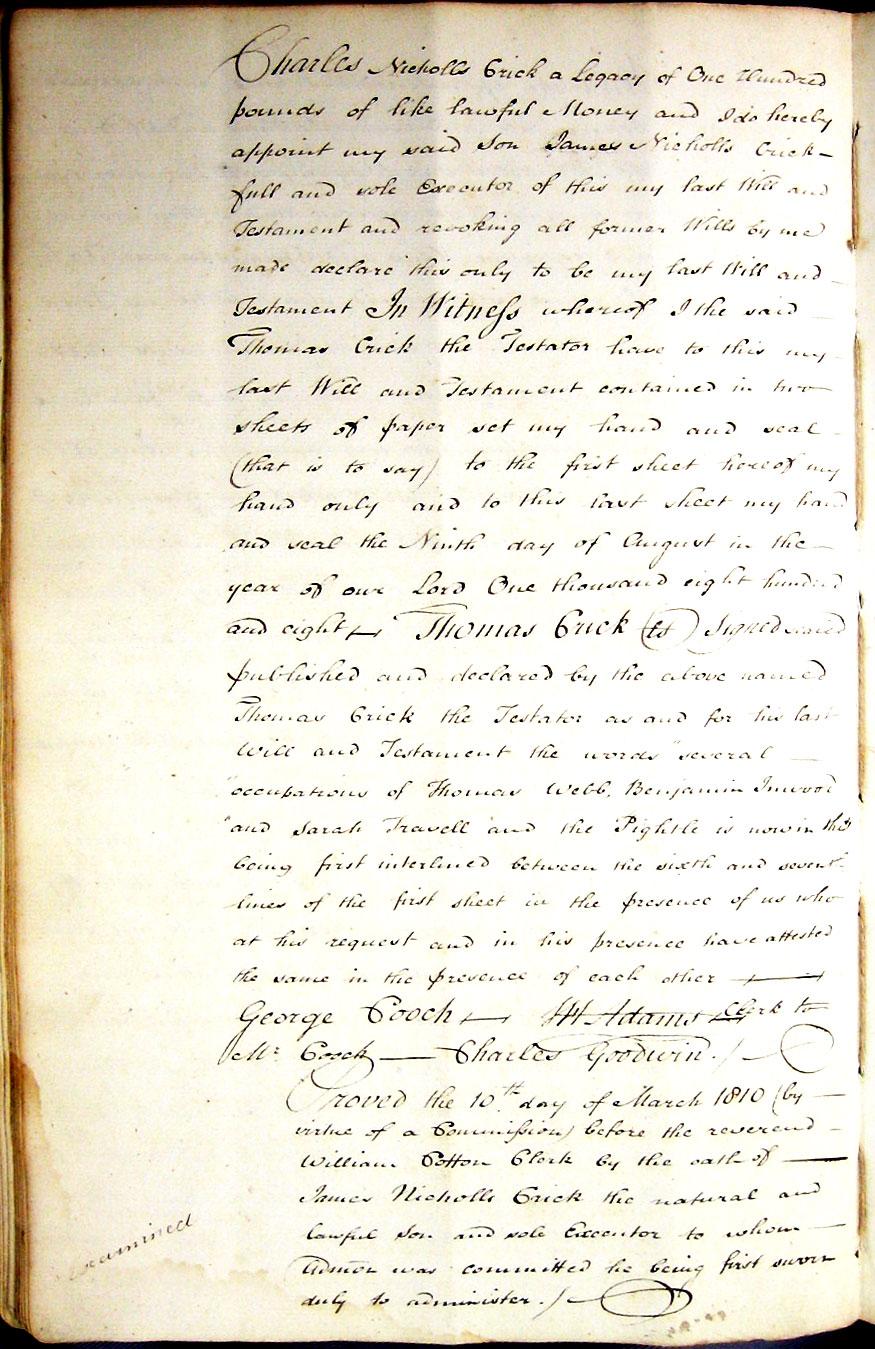 Charles Nicholls Crick a Legacy of One Hundred
pounds of like lawful Money and I do hereby
appoint my said Son James Nicholls Crick
full and sole Executor of this my last Will and
Testament and revoking all former Wills by me
made declare this only to be my last Will and
Testament In Witness whereof I the said
Thomas Crick the Testator have to this my
last Will and Testament contained in two
sheets of paper set my hand and seal
(that is to say) to the first sheet hereof my
hand only and to this last sheet my hand
and seal the Ninth day of August in the
year of our Lord One thousand eight hundred
and eight – Thomas Crick (LS) Signed sealed
published and declared by the above named
Thomas Crick the Testator as and for his last
Will and Testament the words "several
"occupations of Thomas Webb, Benjamin Inwood
"and Sarah Travell and the Pightle is now in the
being first interlined between the sixth and seventh
lines of the first sheet in the presence of us who
at his request and in his presence have attested
the same in the presence of each other
George Cooch – Adams Clerk to
Mr. Cooch – Charles Goodwin./
Proved the 10th day of March 1810 (by
virtue of a Commission) before the reverend
William Cotton Clerk by the oath of
James Nicholls Crick the natural and
lawful Son and sole Executor to whom
Admon was committed he being first sworn
duly to administer./
Examined